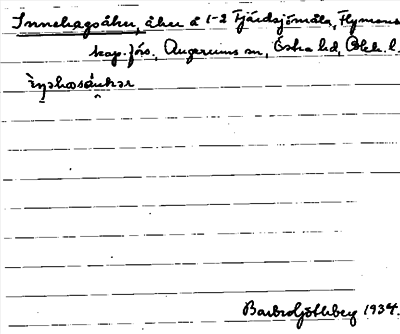 Innehagsåker, åker å 1-2 Fjärdsjömåla, Flymens
kap. förs., Augerums sn, Östra hd, Blek. l.
Barbro Ljöthberg 1934.